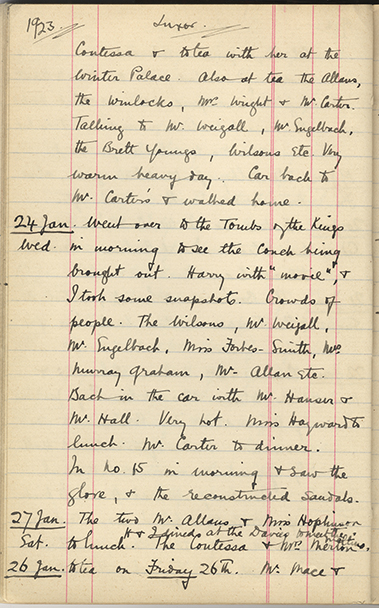 1923. Luxor.
Contessa & to tea with her at the
Winter Palace. Also at tea the Allans,
the Winlocks, Mrs Wright & Mr Carter.
Talking to Mr. Weigall, Mr Engelbach,
the Brett Youngs, Wilsons Etc. Very
warm heavy day. Car back to
Mr. Carter's & walked home.
24 Jan. Went over to the Tombs of the Kings
Wed. in morning to see the Couch being
brought out. Harry with "movie", &
I took some snapshots. Crowds of
people. The Wilsons, Mr Weigall,
Mr. Engelbach, Miss Forbes-Smith, Mrs
Murray Graham, Mr. Allan Etc.
Back in the car with Mr. Hauser &
Mr. Hall. Very hot. Miss Hayward to
lunch. Mr. Carter to dinner.
In No. 15 in morning & saw the
glove, & the reconstructed Sandals.
27 Jan. The two Mr. Allans, & Miss Hopkinson
H & I dined at the Davies to meet the
Sat. to lunch. The Contessa & Mrs Merton,
26 Jan. to tea on Friday 26th. Mr. Mace &